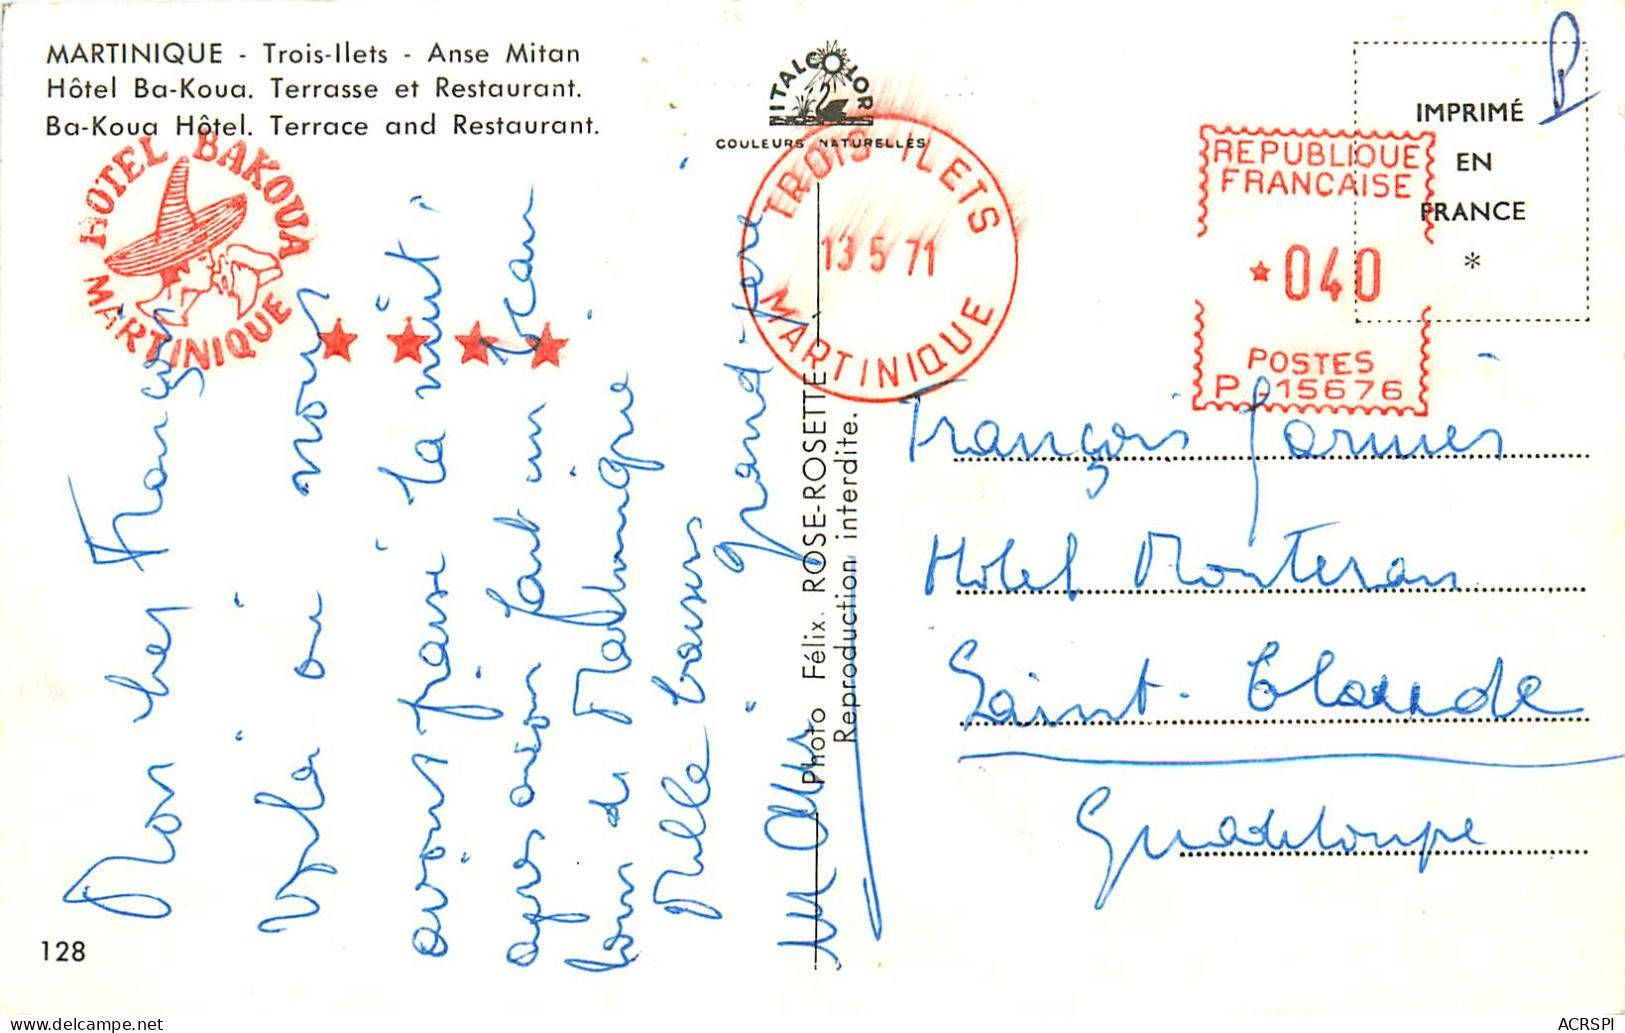 MARTINIQUE - Trois-Ilets - Anse Mitan
Hôtel Ba-Koua. Terrasse et Restaurant.
Ba-Koua Hôtel. Terrace and Restaurant.
HOTEL BAKOUA
MARTINIQUE
Mon cher François
voilà où nous
avons passé la nuit,
après avoir fait un beau
tour de Martinique
Mille baisers
grand-père
128
ITALCOLOR
COULEURS NATURELLES
TROIS-ILETS
13 5 71
MARTINIQUE
Photo Félix. ROSE-ROSETTE
Reproduction interdite.
REPUBLIQUE
FRANCAISE
040
POSTES
P. 15676
IMPRIMÉ
EN
FRANCE
*
François
Hotel
Saint-Claude
Guadeloupe
ACRSPI